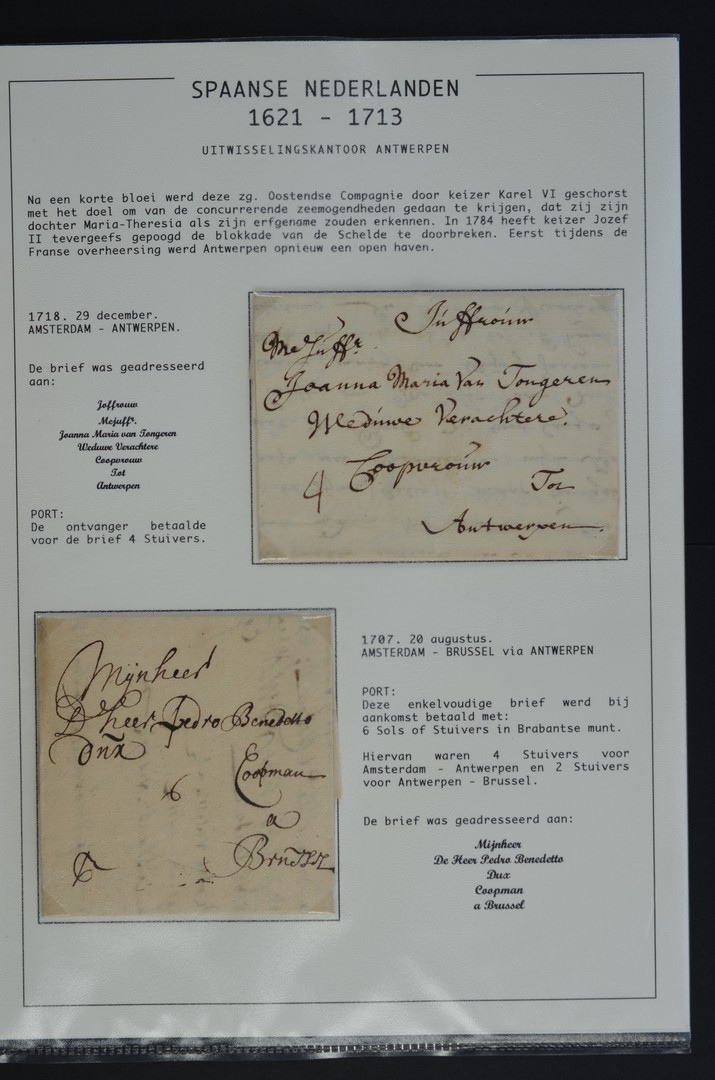 SPAANSE NEDERLANDEN
1621 - 1713
UITWISSELINGSKANTOOR ANTWERPEN
Na een korte bloei werd deze zg. Oostendse Compagnie door keizer Karel VI geschorst
met het doel om van de concurrerende zeemogendheden gedaan te krijgen, dat zij zijn
dochter Maria-Theresia als zijn erfgename zouden erkennen. In 1784 heeft keizer Jozef
II tevergeefs gepoogd de blokkade van de Schelde te doorbreken. Eerst tijdens de
Franse overheersing werd Antwerpen opnieuw een open haven.
1718. 29 december.
AMSTERDAM - ANTWERPEN.
De brief was geadresseerd
aan:
Joffrouw
Mejuffr.
Joanna Maria van Tongeren
Weduwe Verachtere
Coopvrouw
Tot
Antwerpen
PORT:
De ontvanger betaalde
voor de brief 4 Stuivers.
Juffrouw
MeJuffr
Joanna Maria Van Tongeren
Weduwe Verachtere
4 Coopvrouw
Tot
Antwerpen.
Mijnheer
D'heer Pedro Benedetto
Dux
Coopman
6
a
1707. 20 augustus.
AMSTERDAM - BRUSSEL via ANTWERPEN
PORT:
Deze enkelvoudige brief werd bij
aankomst betaald met:
6 Sols of Stuivers in Brabantse munt.
Hiervan waren 4 Stuivers voor
Amsterdam - Antwerpen en 2 Stuivers
voor Antwerpen - Brussel.
De brief was geadresseerd aan:
Mijnheer
De Heer Pedro Benedetto
Dux
Coopman
a Brussel